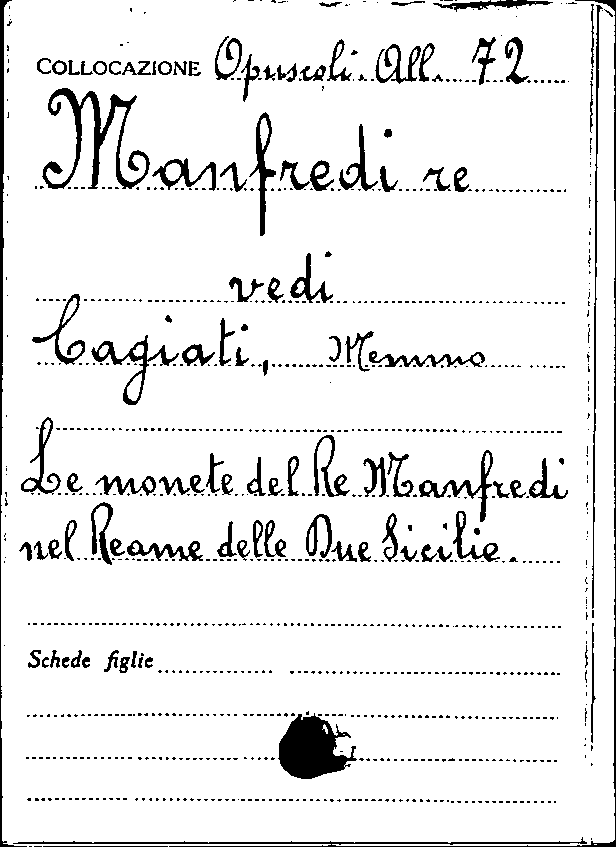 COLLOCAZIONE Opuscoli. All. 72
Manfredi re
vedi
Cagiati, Memmo
Le monete del Re Manfredi
nel Reame delle Due Sicilie.
Schede figlie